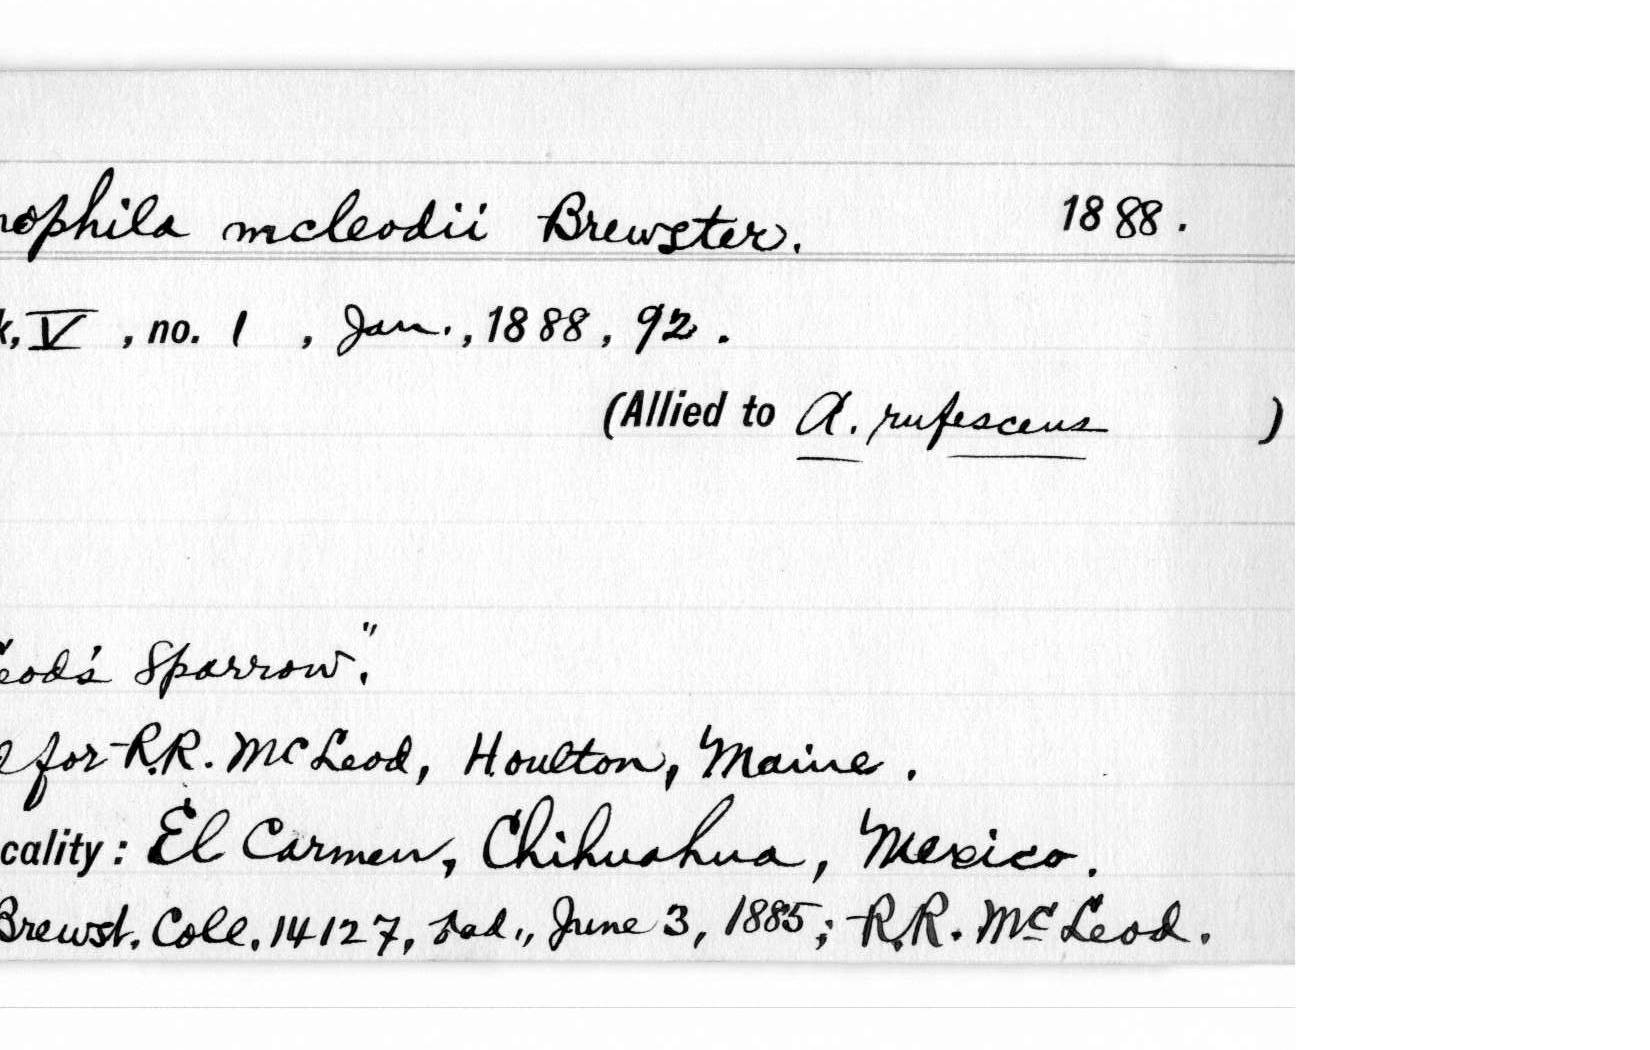 nophila mcleodii Brewster. 1888.
k, V, no. 1, Jan., 1888, 92.
(Allied to A. rufescens )
eod's Sparrow."
for R.R. McLeod, Houlton, Maine.
cality: El Carmen, Chihuahua, Mexico.
Brewst. Coll. 14127, ad., June 3, 1885; R.R. McLeod.